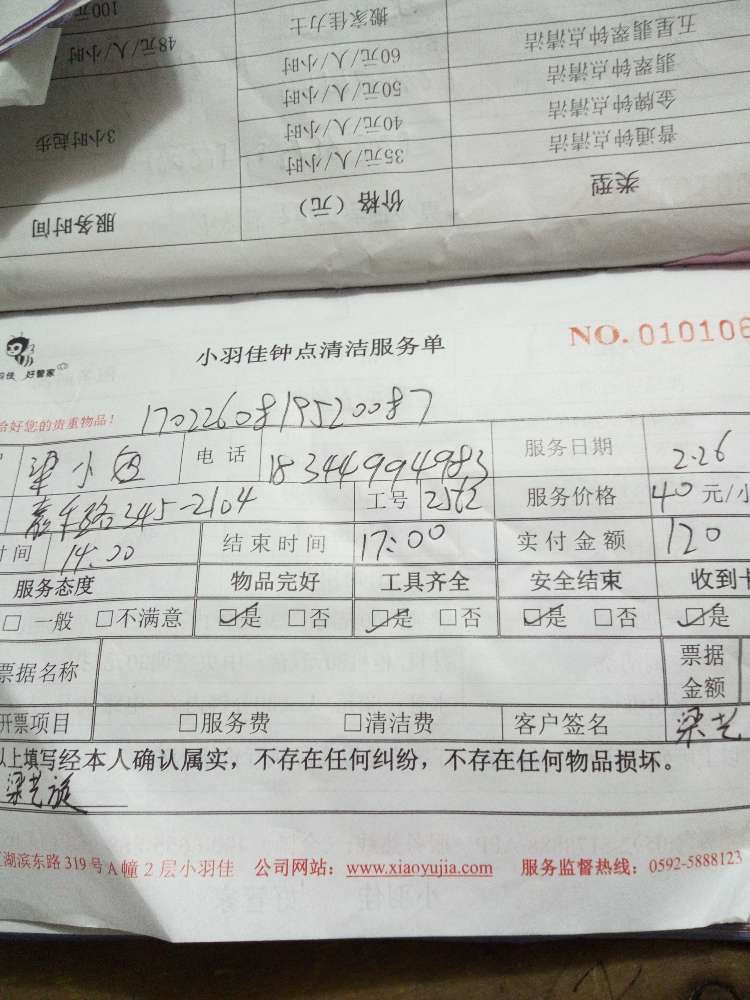 100元
搬家佳力士
48元/人/小时
60元/人/小时
五星翡翠钟点清洁
50元/人/小时
翡翠钟点清洁
40元/人/小时
金牌钟点清洁
3小时起步
35元/人/小时
普通钟点清洁
服务时间
价格（元）
类型
好管家
小羽佳钟点清洁服务单
NO. 010106
好您的贵重物品！
1702260819520087
梁小姐 电话 18344994983 服务日期 2.26
嘉禾路345-2104 工号 2562 服务价格 40元/小
时间 14:00 结束时间 17:00 实付金额 120
服务态度 物品完好 工具齐全 安全结束 收到卡
□ 一般 □不满意 ☑是 □否 ☑是 □否 ☑是 □否 ☑是
票据名称 票据金额
开票项目 □服务费 □清洁费 客户签名 梁艺
以上填写经本人确认属实，不存在任何纠纷，不存在任何物品损坏。
梁艺旋
湖滨东路319号A幢2层小羽佳 公司网站：www.xiaoyujia.com 服务监督热线：0592-5888123